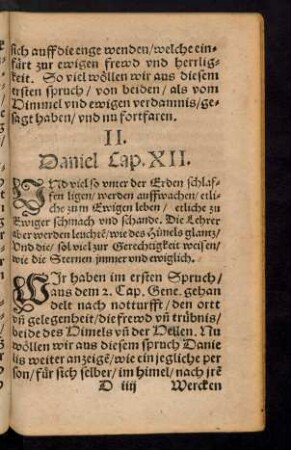 sich auff die enge wenden/welche ein-
fürt zur ewigen frewd vnd herrlig-
keit. So viel wöllen wir aus diesem
ersten spruch/ von beiden/ als vom
Himmel vnd ewigen verdamnis/ge-
sagt haben/ vnd nu fortfaren.
II.
Daniel Cap. XII.
VNd viel so vnter der Erden schlaf-
fen ligen/ werden auffwachen/ etli-
che zum Ewigen leben/ etliche zu
Ewiger schmach vnd schande. Die Lehrer
aber werden leuchtē/ wie des Hümels glantz/
Vnd die/ so viel zur Gerechtigkeit weisen/
wie die Sternen jmmer vnd ewiglich.
WJr haben im ersten Spruch/
aus dem 2. Cap. Gene. gehan
delt nach notturfft/ den ortt
vn̄ gelegenheit/ die frewd vn̄ trübnis/
beide des Himels vn̄ der Hellen. Nu
wöllen wir aus diesem spruch Danie
lis weiter anzeigē/ wie ein jegliche per
son/ für sich selber/ im himel/ nach jrē
D iiij Wercken